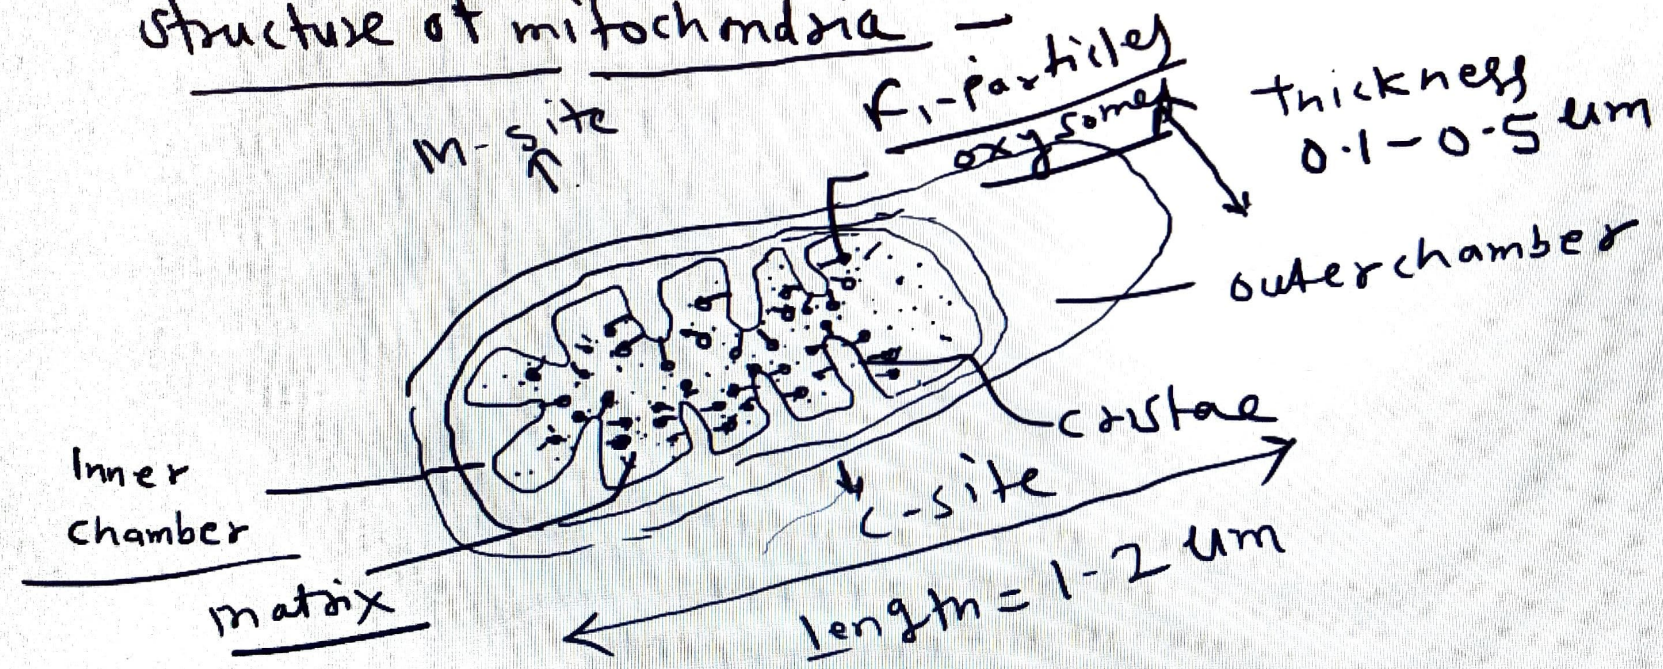 structure of mitochondria -
M-site
F1-particles
oxysomes
thickness
0.1-0.5 um
outerchamber
cristae
Inner
chamber
C-site
matrix
length = 1-2 um